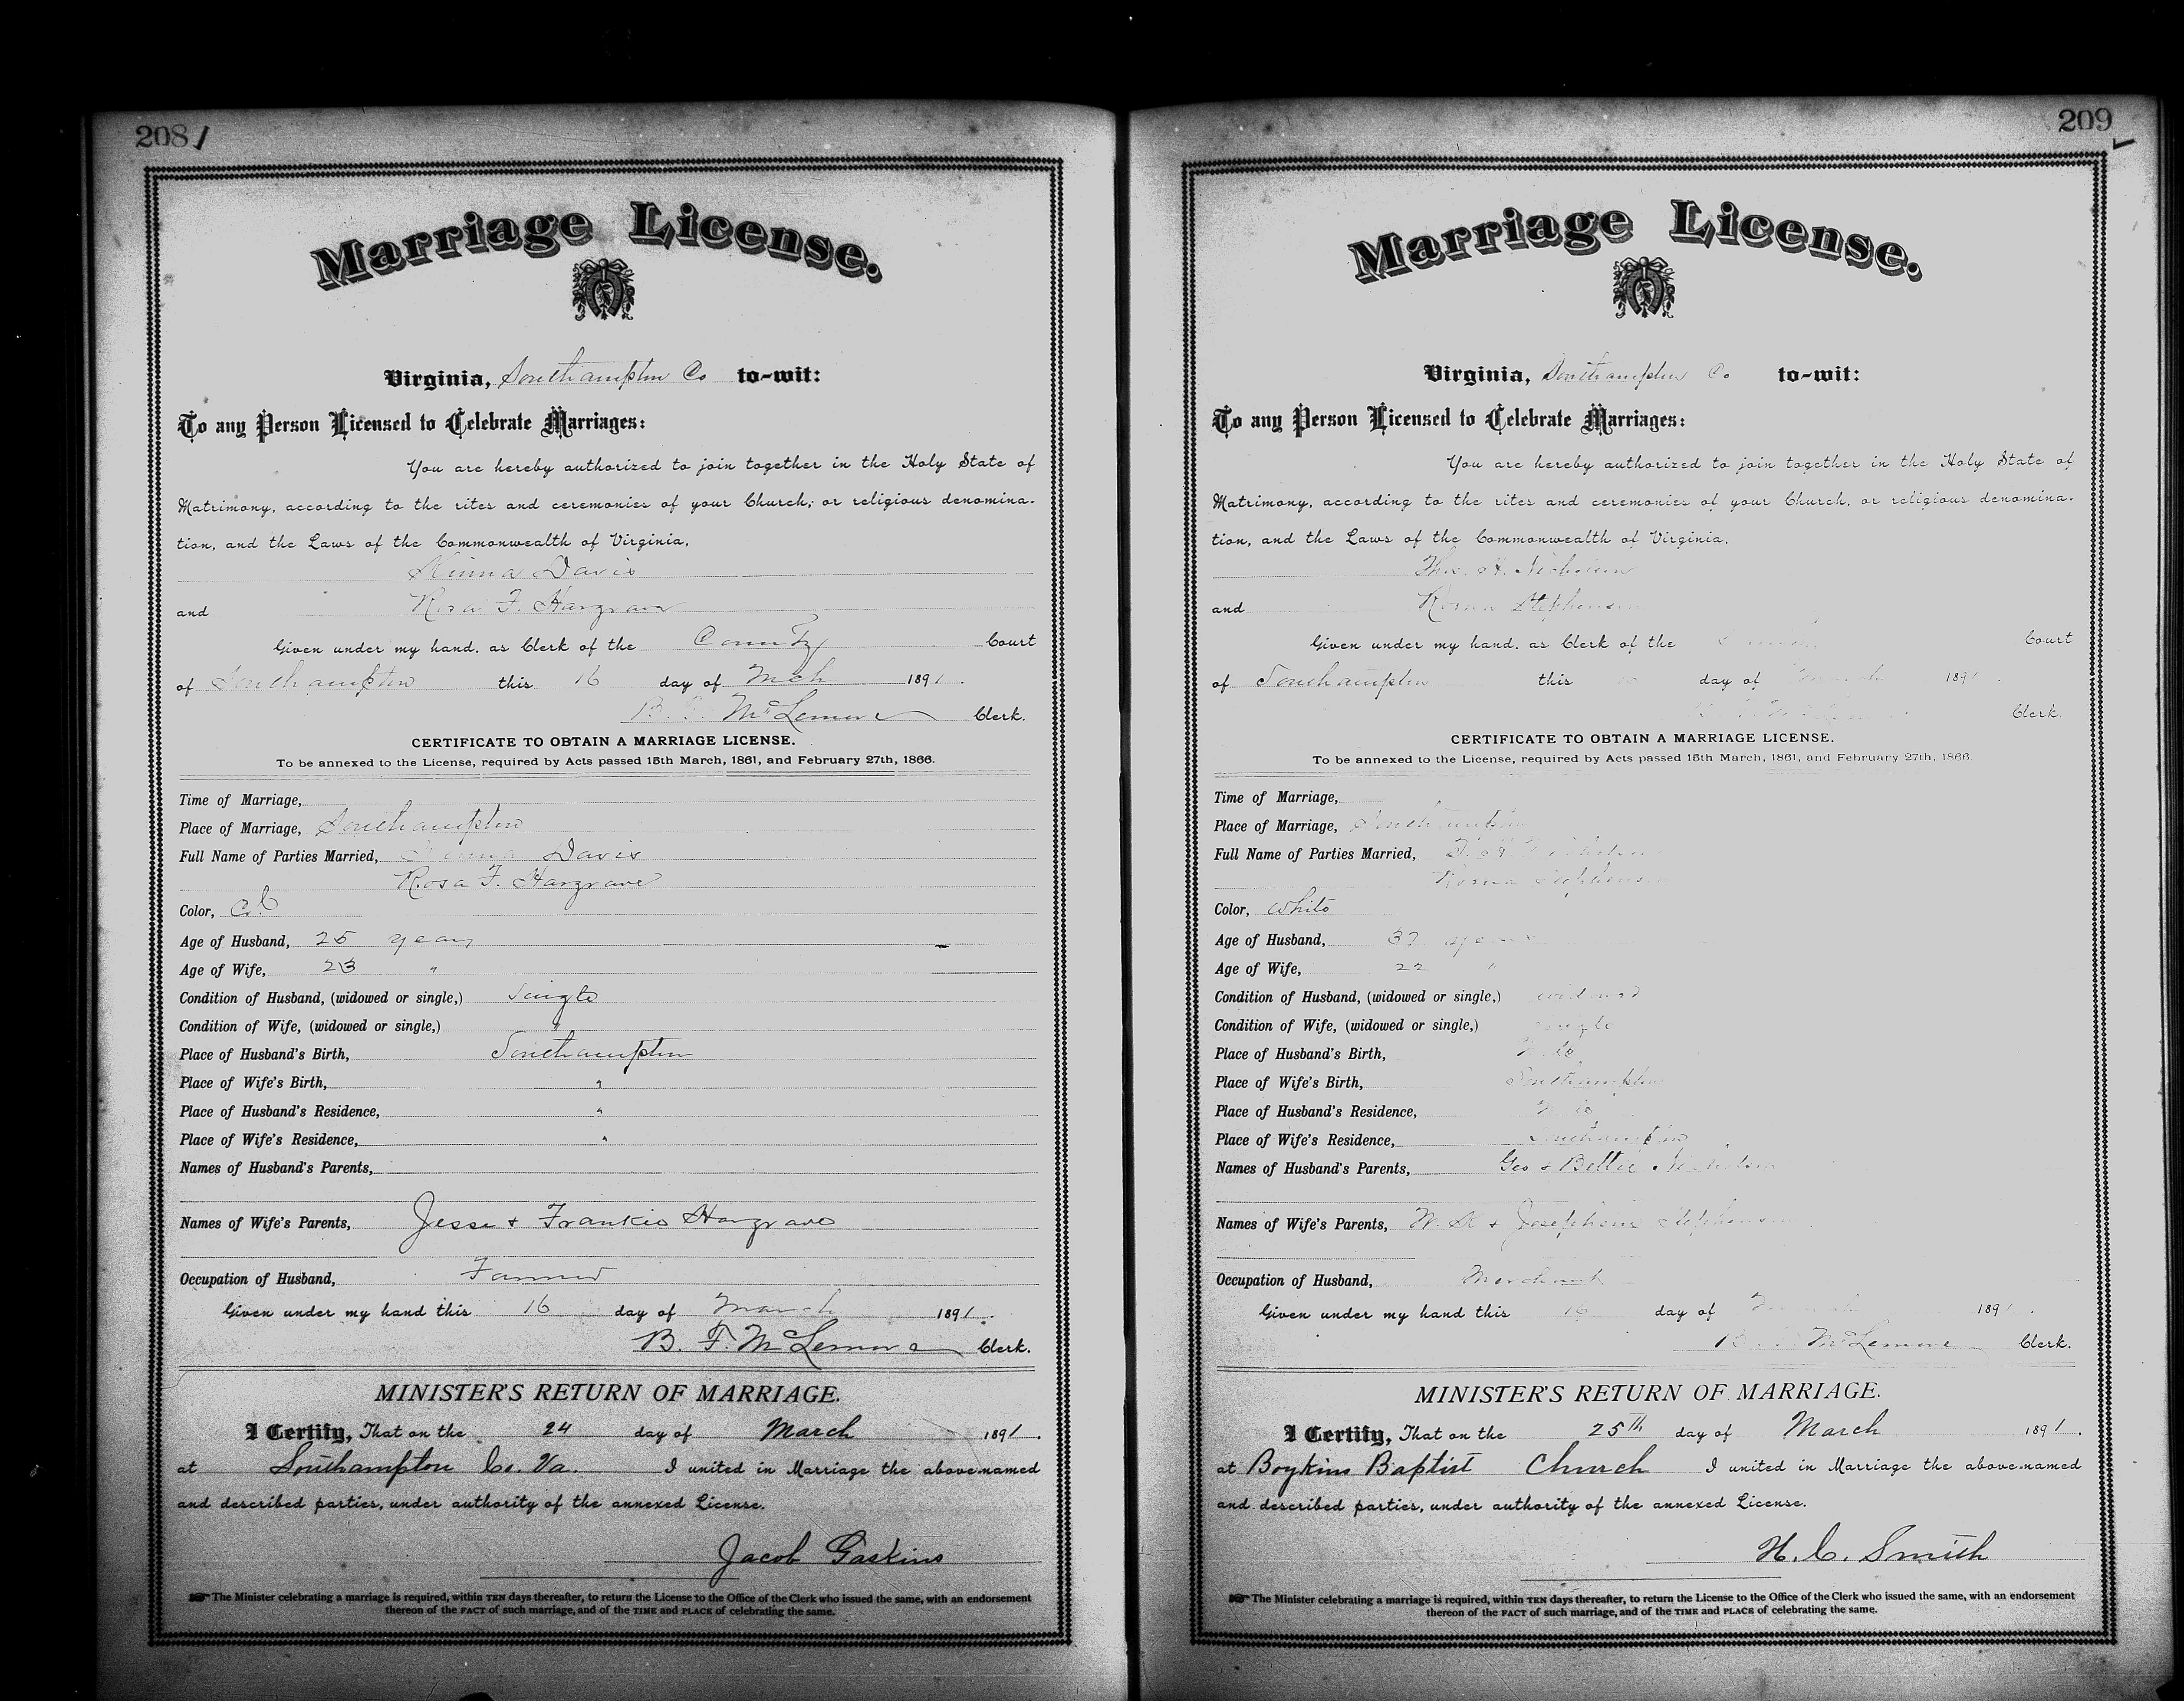 208
Marriage License.
Virginia, Southampton Co to-wit:
To any Person Licensed to Celebrate Marriages:
You are hereby authorized to join together in the Holy State of
Matrimony, according to the rites and ceremonies of your Church, or religious denomina-
tion, and the Laws of the Commonwealth of Virginia.
Davis
and Rosa F. Hargrave
Given under my hand, as Clerk of the County Court
of Southampton this 16 day of Mch 1891.
B. F. McLemore Clerk.
CERTIFICATE TO OBTAIN A MARRIAGE LICENSE.
To be annexed to the License, required by Acts passed 15th March, 1861, and February 27th, 1866.
Time of Marriage,
Place of Marriage, Southampton
Full Name of Parties Married, Davis
Rosa F. Hargrave
Color, Col
Age of Husband, 25 years
Age of Wife, 23 "
Condition of Husband, (widowed or single,) Single
Condition of Wife, (widowed or single,) "
Place of Husband's Birth, Southampton
Place of Wife's Birth, "
Place of Husband's Residence, "
Place of Wife's Residence, "
Names of Husband's Parents,
Names of Wife's Parents, Jesse & Frankie Hargrave
Occupation of Husband, Farmer
Given under my hand this 16 day of March 1891.
B. F. McLemore Clerk.
MINISTER'S RETURN OF MARRIAGE.
I Certify, That on the 24 day of March 1891.
at Southampton Co. Va. I united in Marriage the above-named
and described parties, under authority of the annexed License.
Jacob Gaskins
The Minister celebrating a marriage is required, within TEN days thereafter, to return the License to the Office of the Clerk who issued the same, with an endorsement
thereon of the FACT of such marriage, and of the TIME and PLACE of celebrating the same.
209
Marriage License.
Virginia, Southampton Co to-wit:
To any Person Licensed to Celebrate Marriages:
You are hereby authorized to join together in the Holy State of
Matrimony, according to the rites and ceremonies of your Church, or religious denomina-
tion, and the Laws of the Commonwealth of Virginia.
Thos. H. Nicholson
and Stephenson
Given under my hand, as Clerk of the Court
of Southampton this day of March 1891.
Clerk.
CERTIFICATE TO OBTAIN A MARRIAGE LICENSE.
To be annexed to the License, required by Acts passed 15th March, 1861, and February 27th, 1866.
Time of Marriage,
Place of Marriage, Southampton
Full Name of Parties Married, Nicholson
Stephenson
Color, White
Age of Husband, 37 years
Age of Wife, 22 "
Condition of Husband, (widowed or single,) widowed
Condition of Wife, (widowed or single,) single
Place of Husband's Birth,
Place of Wife's Birth, Southampton
Place of Husband's Residence,
Place of Wife's Residence, Southampton
Names of Husband's Parents, Geo & Bettie Nicholson
Names of Wife's Parents, & Josephine Stephenson
Occupation of Husband, Merchant
Given under my hand this 16 day of March 1891.
McLemore Clerk.
MINISTER'S RETURN OF MARRIAGE.
I Certify, That on the 25th day of March 1891.
at Boykins Baptist Church I united in Marriage the above-named
and described parties, under authority of the annexed License.
H. C. Smith
The Minister celebrating a marriage is required, within TEN days thereafter, to return the License to the Office of the Clerk who issued the same, with an endorsement
thereon of the FACT of such marriage, and of the TIME and PLACE of celebrating the same.